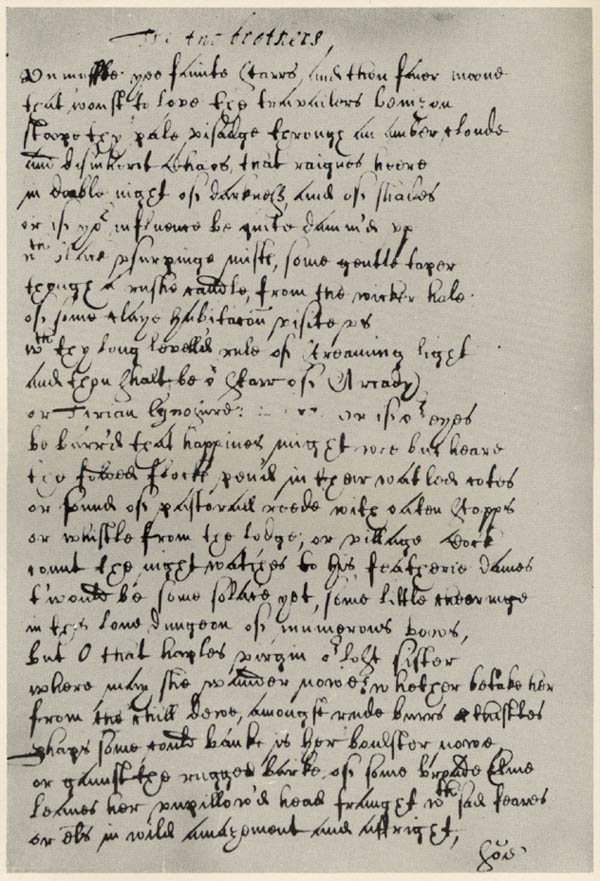 The two brothers,
Vnmuffle yee fainte starrs, and thou faier moone
that wonst to love the travailers benizon
stoope thy pale visadge through an amber cloude
and disinherit Chaos, that raignes heere
in double night of darkness, and of shades
or if yor influence be quite damm'd vp
wth blacke vsurpinge mists, some gentle taper
though a rushe candle, from the wicker hole
of some claye habitacon visite vs
wth thy long levell'd rule of streaming light
and thou shalt be or starr of Arcady
or Tirian Cynosure: or if or eyes
be barr'd that happines might wee but heare
the folded flocks pen'd in their watled cotes
or sound of pastorall reede with oaten stopps
or whistle from the lodge, or village Cock
count the night watches to his featherie dames
t'would be some solace yet, some little cheeringe
in this lone dungeon of inumerous bows,
but O that haples virgin or lost sister
where may she wander nowe, whether betake her
from the chill dewe, amongst rude burrs & thistles
phaps some could banke is her boulster nowe
or gainst the rugged barke of some broade Elme
leanes her vnpillow'd head fraught wth sad feares
or els in wild amazement and affright,